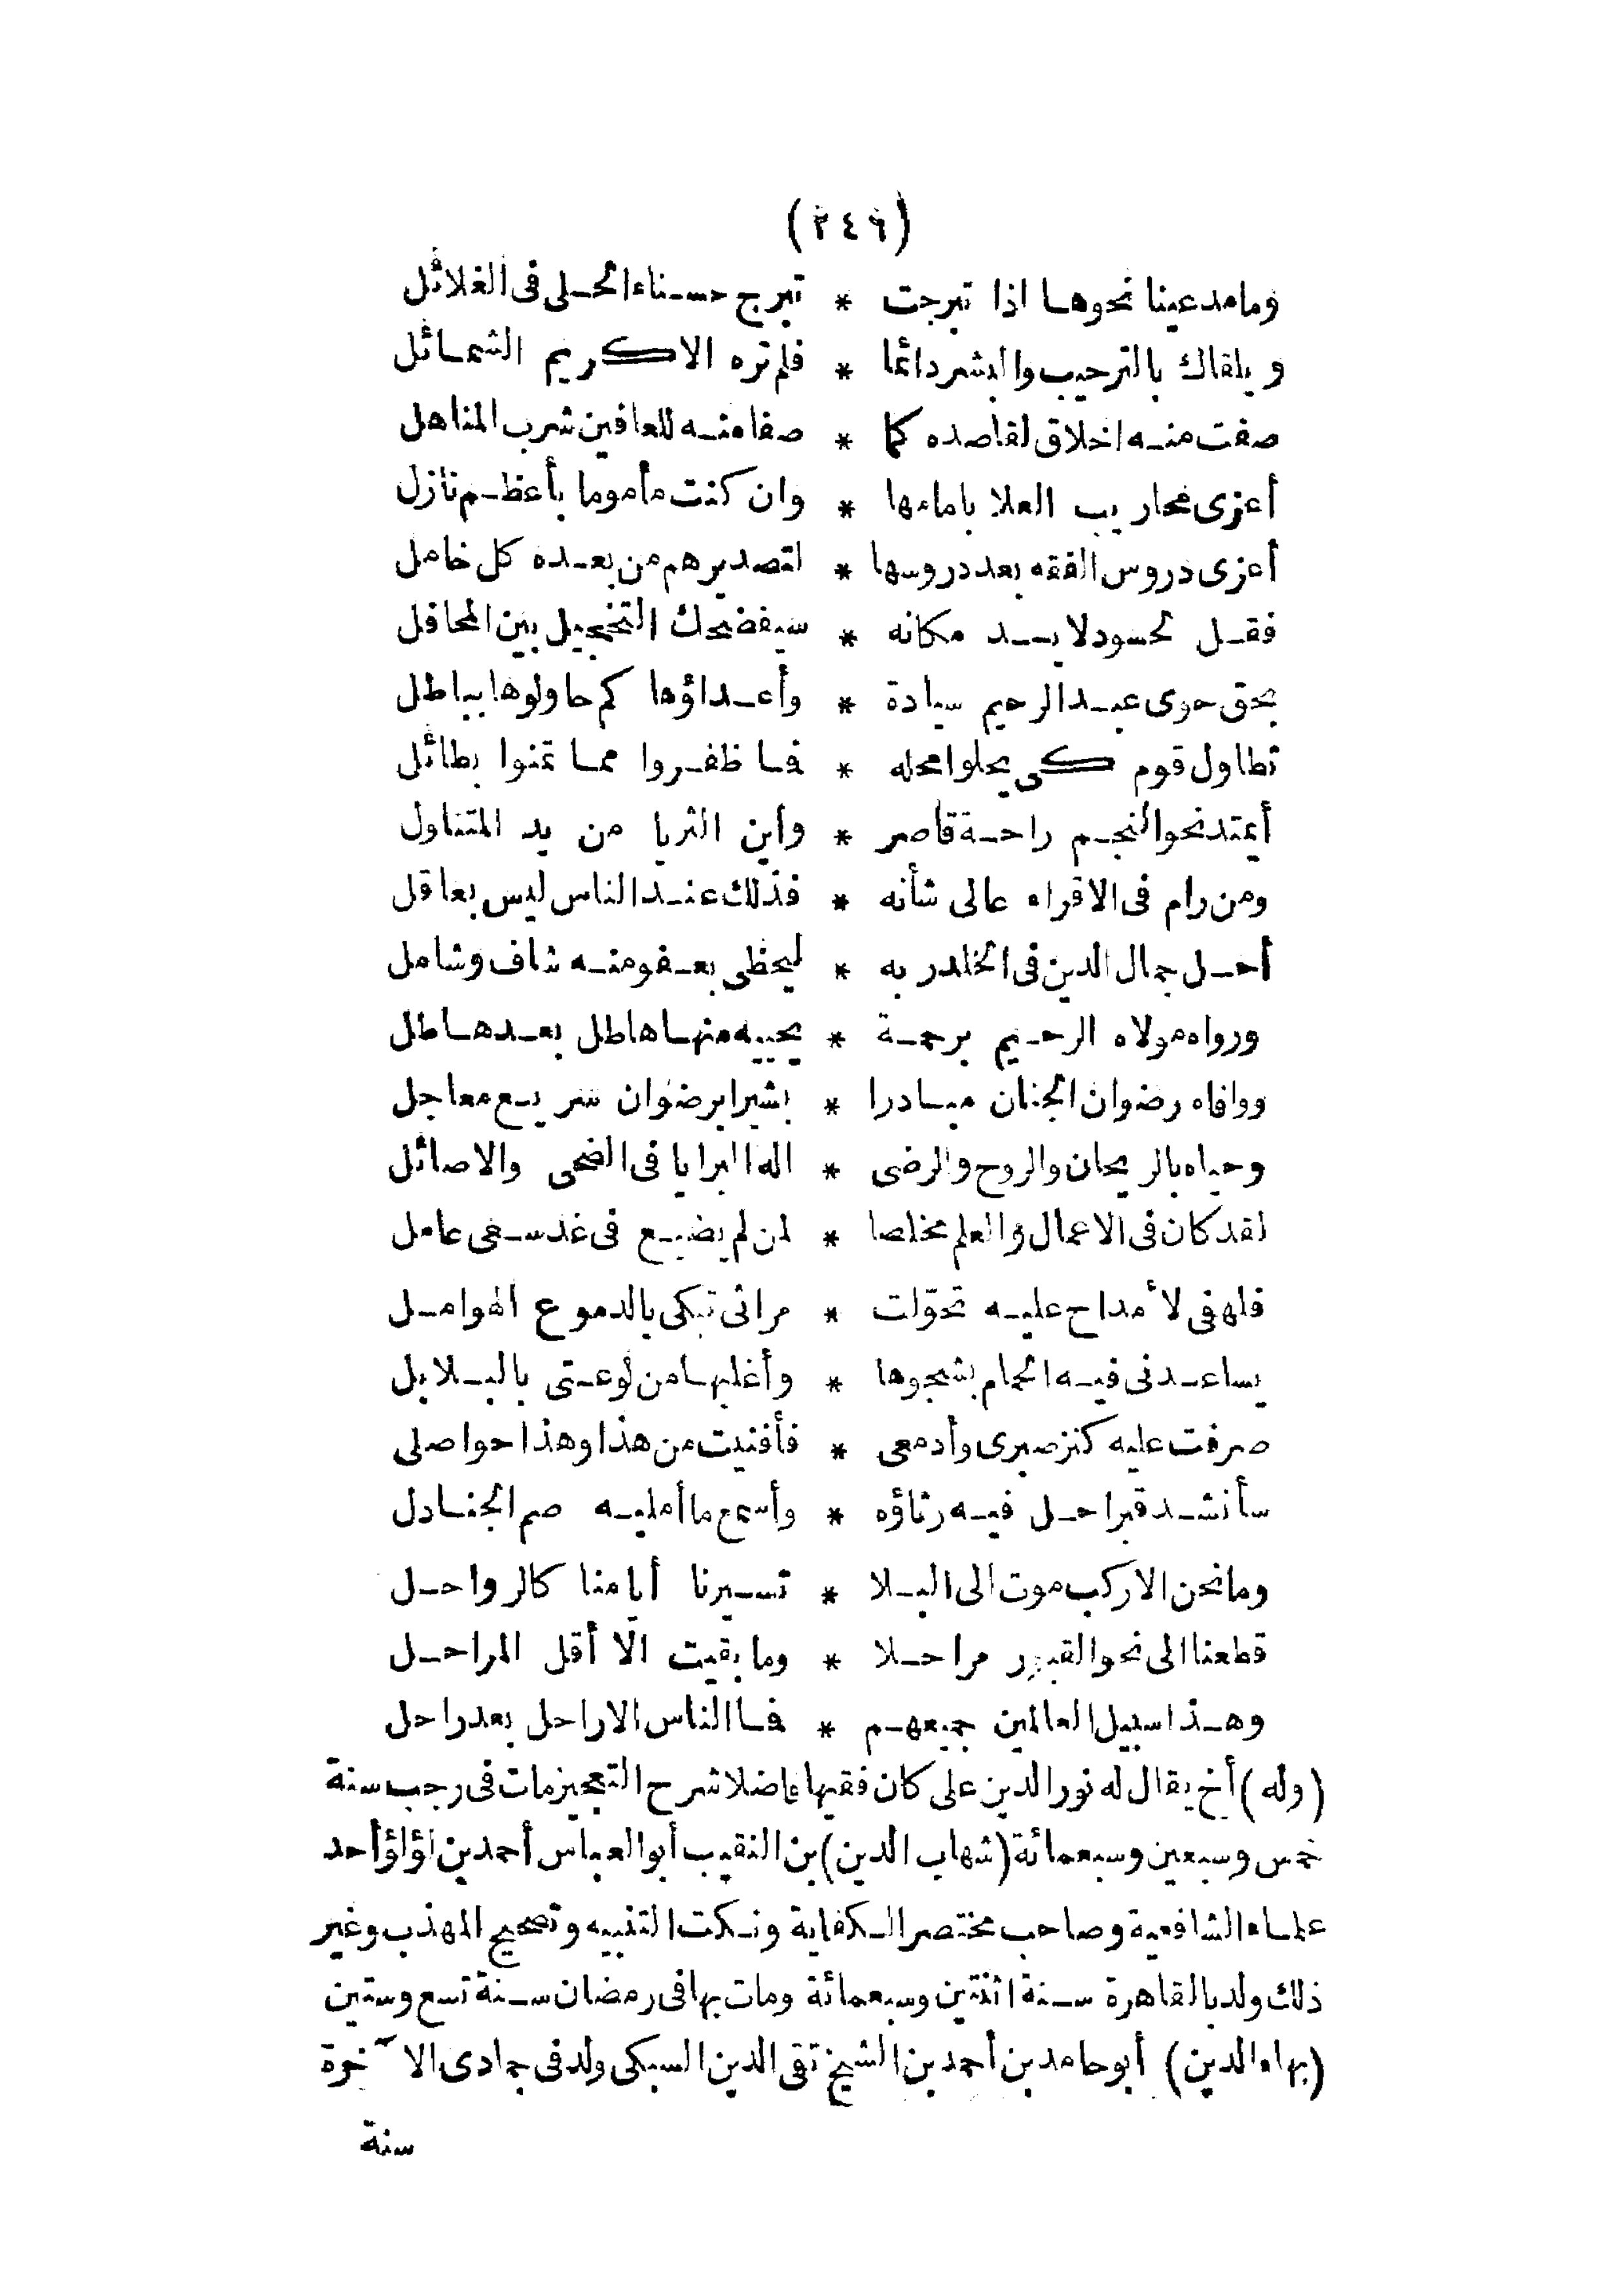 (٢٤٦)
ومامد عينا نحوها اذا تبرجت * تبرج حسناء الحلى فى الغلائل
ويلقاك بالترحيب والبشر دائما * فلم تره الا كريم الشمائل
صفت منه اخلاق لقاصده كما * صفا منه للعافين شرب المناهل
أعزى محاريب العلا بامامها * وان كنت مأموما بأعظم نازل
أعزى دروس الفقه بعد دروسها * لتصديرهم من بعده كل خامل
فقل لحسود لا يسد مكانه * سيفضحك التخجيل بين المحافل
بحق حوى عبد الرحيم سيادة * وأعداؤها كم حاولوها بباطل
تطاول قوم كى يحلوا محله * فما ظفروا مما تمنوا بطائل
أيمتد نحو النجم راحة قاصر * وأين الثريا من يد المتناول
ومن رام فى الاقراء عالى شأنه * فذلك عند الناس ليس بعاقل
أحل جمال الدين فى الخلد ربه * ليحظى بعفو منه شاف وشامل
ورواه مولاه الرحيم برحمة * يحييه منها هاطل بعد هاطل
ووافاه رضوان الجنان مبادرا * بشيرا برضوان سريع معاجل
وحياه بالريحان والروح والرضى * اله البرايا فى الضحى والاصائل
لقد كان فى الاعمال والعلم مخلصا * لمن لم يضيع فى غد سعى عامل
فلهفى لأمداح عليه تحوّلت * مراثى تبكى بالدموع الهوامل
يساعدنى فيه الحمام بشجوها * وأغلبها من لوعتى بالبلابل
صرفت عليه كنز صبرى وأدمعى * فأفنيت من هذا وهذا حواصلى
سأنشد قبرا حل فيه رثاؤه * وأسمع ما أمليه صم الجنادل
وما نحن الا ركب موت الى البلا * تسيرنا أيامنا كالرواحل
قطعنا الى نحو القبور مراحلا * وما بقيت الا أقل المراحل
وهذا سبيل العالمين جميعهم * فما الناس الا راحل بعد راحل
(وله) أخ يقال له نور الدين على كان فقيها فاضلا شرح التعجيز مات فى رجب سنة
خمس وسبعين وسبعمائة (شهاب الدين) بن النقيب أبو العباس أحمد بن لؤلؤ أحد
علماء الشافعية وصاحب مختصر الكفاية ونكت التنبيه وتصحيح المهذب وغير
ذلك ولد بالقاهرة سنة اثنتين وسبعمائة ومات بها فى رمضان سنة تسع وستين
(بهاء الدين) أبو حامد بن أحمد بن الشيخ تقى الدين السبكى ولد فى جمادى الآخرة
سنة